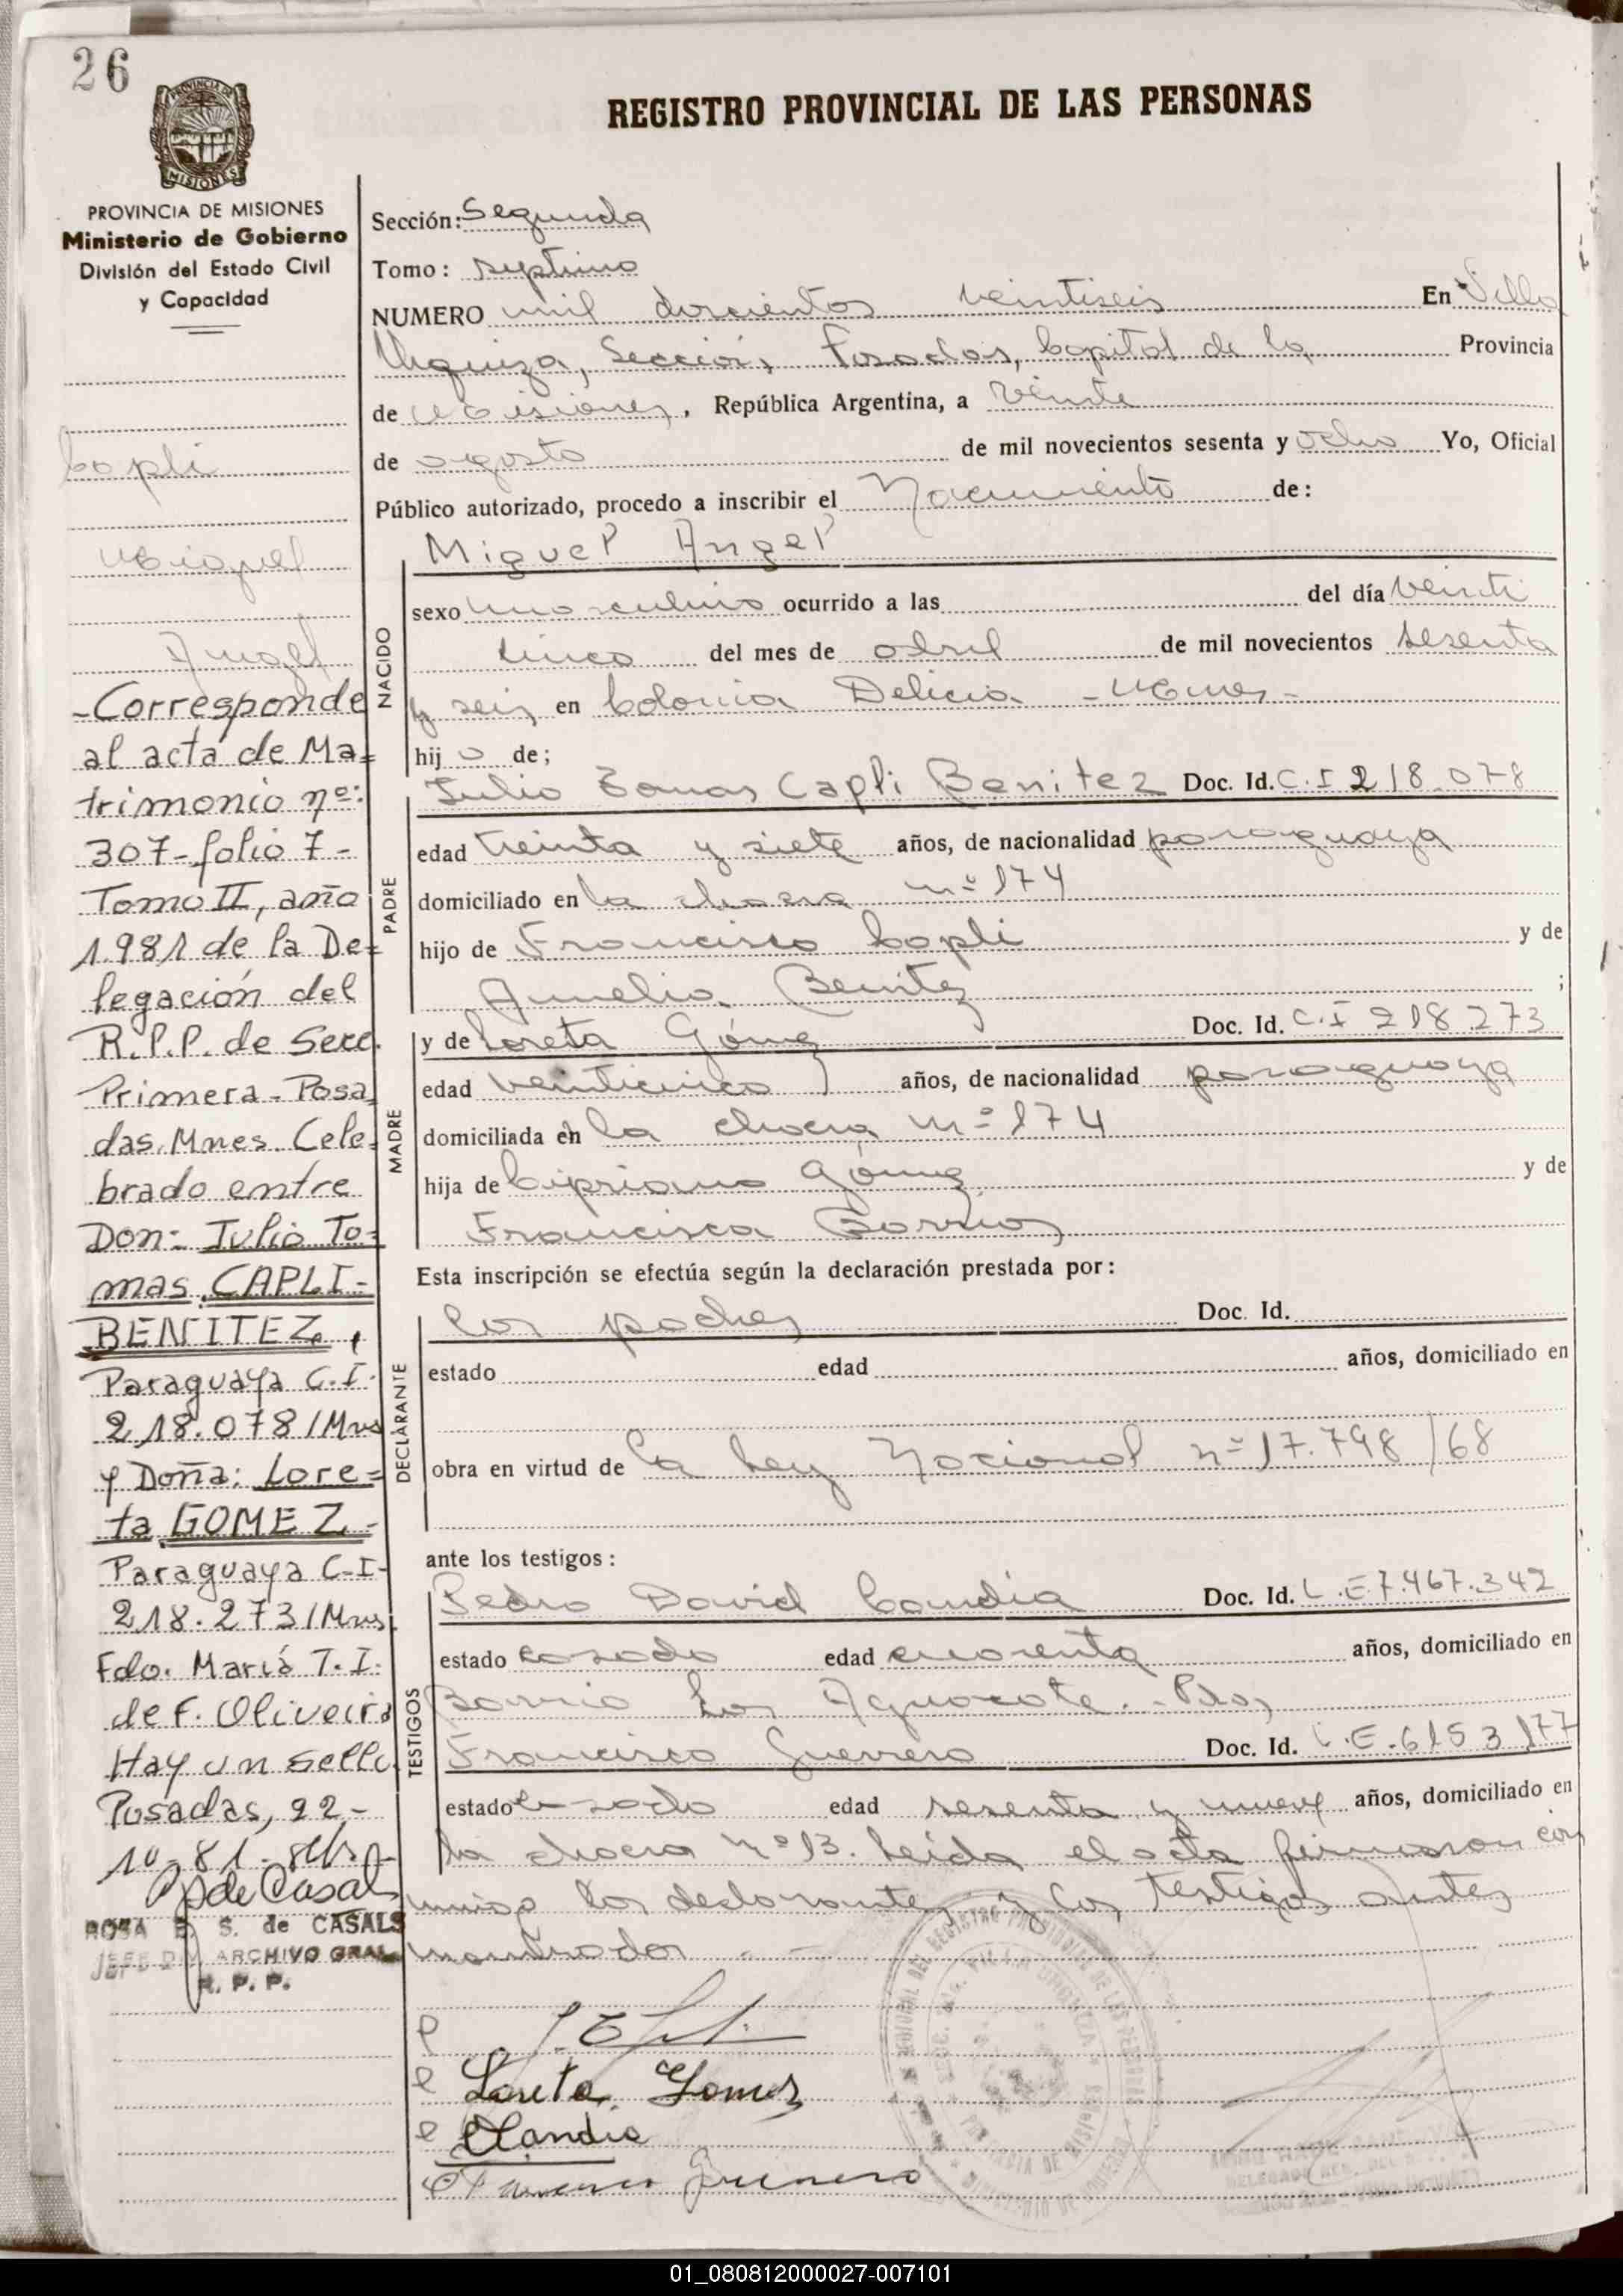 26
REGISTRO PROVINCIAL DE LAS PERSONAS
PROVINCIA DE
MISIONES
PROVINCIA DE MISIONES
Ministerio de Gobierno
División del Estado Civil
y Capacidad
Copli
Miguel
Angel
-Corresponde
al acta de Ma=
trimonio nº:
307-folio 7-
Tomo II, año
1.981 de la De=
legación del
R.P.P. de Secc.
Primera-Posa
das.Mnes. Cele=
brado entre
Don: Julio To=
mas CAPLI-
BENITEZ,
Paraguaya C.I.
218.078/Mns
y Doña: Lore=
ta GOMEZ-
Paraguaya C-I-
218.273/Mns.
Fdo. María T.I.
de F. Oliveira
Hay un sello
Posadas, 22-
10-81-
ROSA S. de CASALS
JEFE DIV ARCHIVO GRAL
R. P. P.
Sección: Segunda
Tomo: septimo
NUMERO mil doscientos veintiseis En Villa
Urquiza, Sección Posadas, Capital de la Provincia
de Misiones, República Argentina, a veinte
de agosto de mil novecientos sesenta y ocho Yo, Oficial
Público autorizado, procedo a inscribir el Nacimiento de:
NACIDO
Miguel Angel
sexo masculino ocurrido a las del día veinti
cinco del mes de abril de mil novecientos sesenta
y seis en Colonia Delicia - Mnes -
hijo de;
PADRE
Julio Tomas Capli Benitez Doc. Id. C.I 218.078
edad treinta y siete años, de nacionalidad paraguaya
domiciliado en la chacra nº 174
hijo de Francisco Copli y de
Amelia Benitez ;
MADRE
y de Loreta Gómez Doc. Id. C.I 218.273
edad veinticinco años, de nacionalidad paraguaya
domiciliada en la chacra nº 174
hija de Cipriano Gómez y de
Francisca Barrios
Esta inscripción se efectúa según la declaración prestada por:
DECLARANTE
los padres Doc. Id.
estado edad años, domiciliado en
obra en virtud de la Ley Nacional nº 17.798/68
ante los testigos:
TESTIGOS
Pedro David Candia Doc. Id. L.E 7.467.342
estado casado edad cuarenta años, domiciliado en
Barrio Los Aguacate.-Pdas
Francisco Guerrero Doc. Id. L.E.6153177
estado casado edad sesenta y nueve años, domiciliado en
la chacra nº 13. Leida el acta firmaron con
migo los declarantes y los testigos antes
nombrados
Loreta Gomez
Candia
Francisco Guerrero
01_080812000027-007101